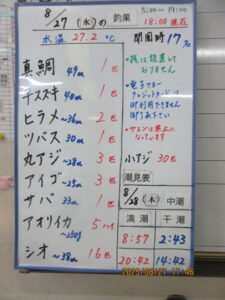 8/27 (水)の 釣果
5:00~19:00
18:00 現在
水温 27.2 ℃
開園時 17名
真鯛 49cm 1匹
キスズキ 40cm 1匹
ヒラメ ~36cm 2匹
ツバス 30cm 1匹
丸アジ ~28cm 3匹
アイゴ ~25cm 3匹
サバ 33cm 1匹
アオリイカ 5ハイ
シオ ~38cm 16匹
・氷は設置して
おりません
・電子マネー
クレジットカードは
御利用できません
御了承下さい
・ヤエンは禁止に
なっています
小アジ 30匹
潮見表
8/28 (木) 中潮
満潮 干潮
8:57 2:43
20:42 14:42
2025/08/27 17:46